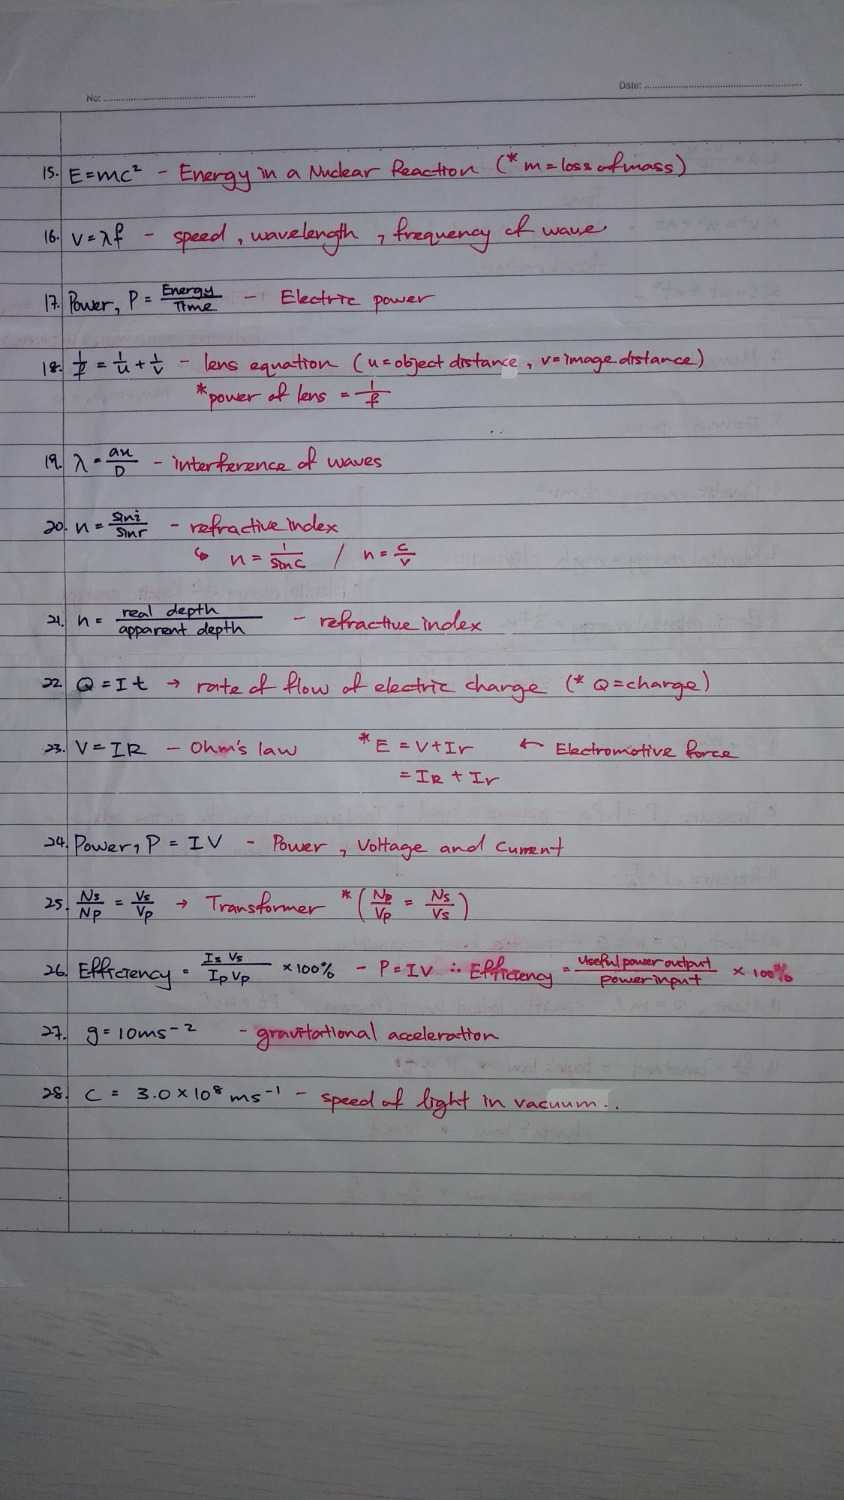 No:
Date:
15. E=mc² - Energy in a Nuclear Reaction (*m=loss of mass)
16. v=λf - speed, wavelength, frequency of wave
17. Power, P = Energy/Time - Electric power
18. 1/f = 1/u + 1/v - lens equation (u=object distance, v=image distance)
*power of lens = 1/f
19. λ = ax/D - interference of waves
20. n = sin i/sin r - refractive index
↳ n = 1/sin c / n = c/v
21. n = real depth/apparent depth - refractive index
22. Q=It → rate of flow of electric charge (* Q=charge)
23. V=IR - Ohm's law *E = V+Ir ← Electromotive force
= IR + Ir
24. Power, P = IV - Power, Voltage and Current
25. Ns/Np = Vs/Vp → Transformer *(Np/Vp = Ns/Vs)
26. Efficiency = Is Vs/Ip Vp × 100% - P=IV ∴ Efficiency = Useful power output/power input × 100%
27. g=10ms⁻² - gravitational acceleration
28. c = 3.0×10⁸ ms⁻¹ - speed of light in vacuum..